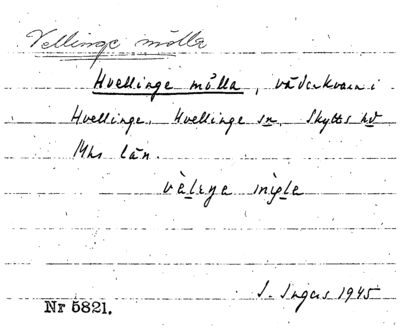 Vellinge mölla
Hvellinge mölla, väderkvarn i
Hvellinge, Hvellinge sn, Skytts hd
Mhs län.
I. Ingers 1945
Nr 5821.